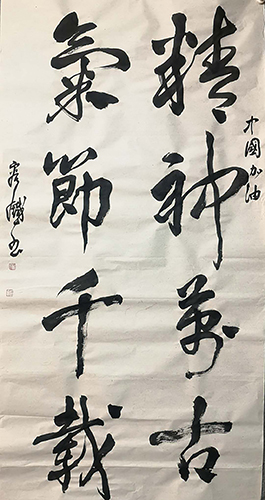 中國加油
精神萬古
氣節千載